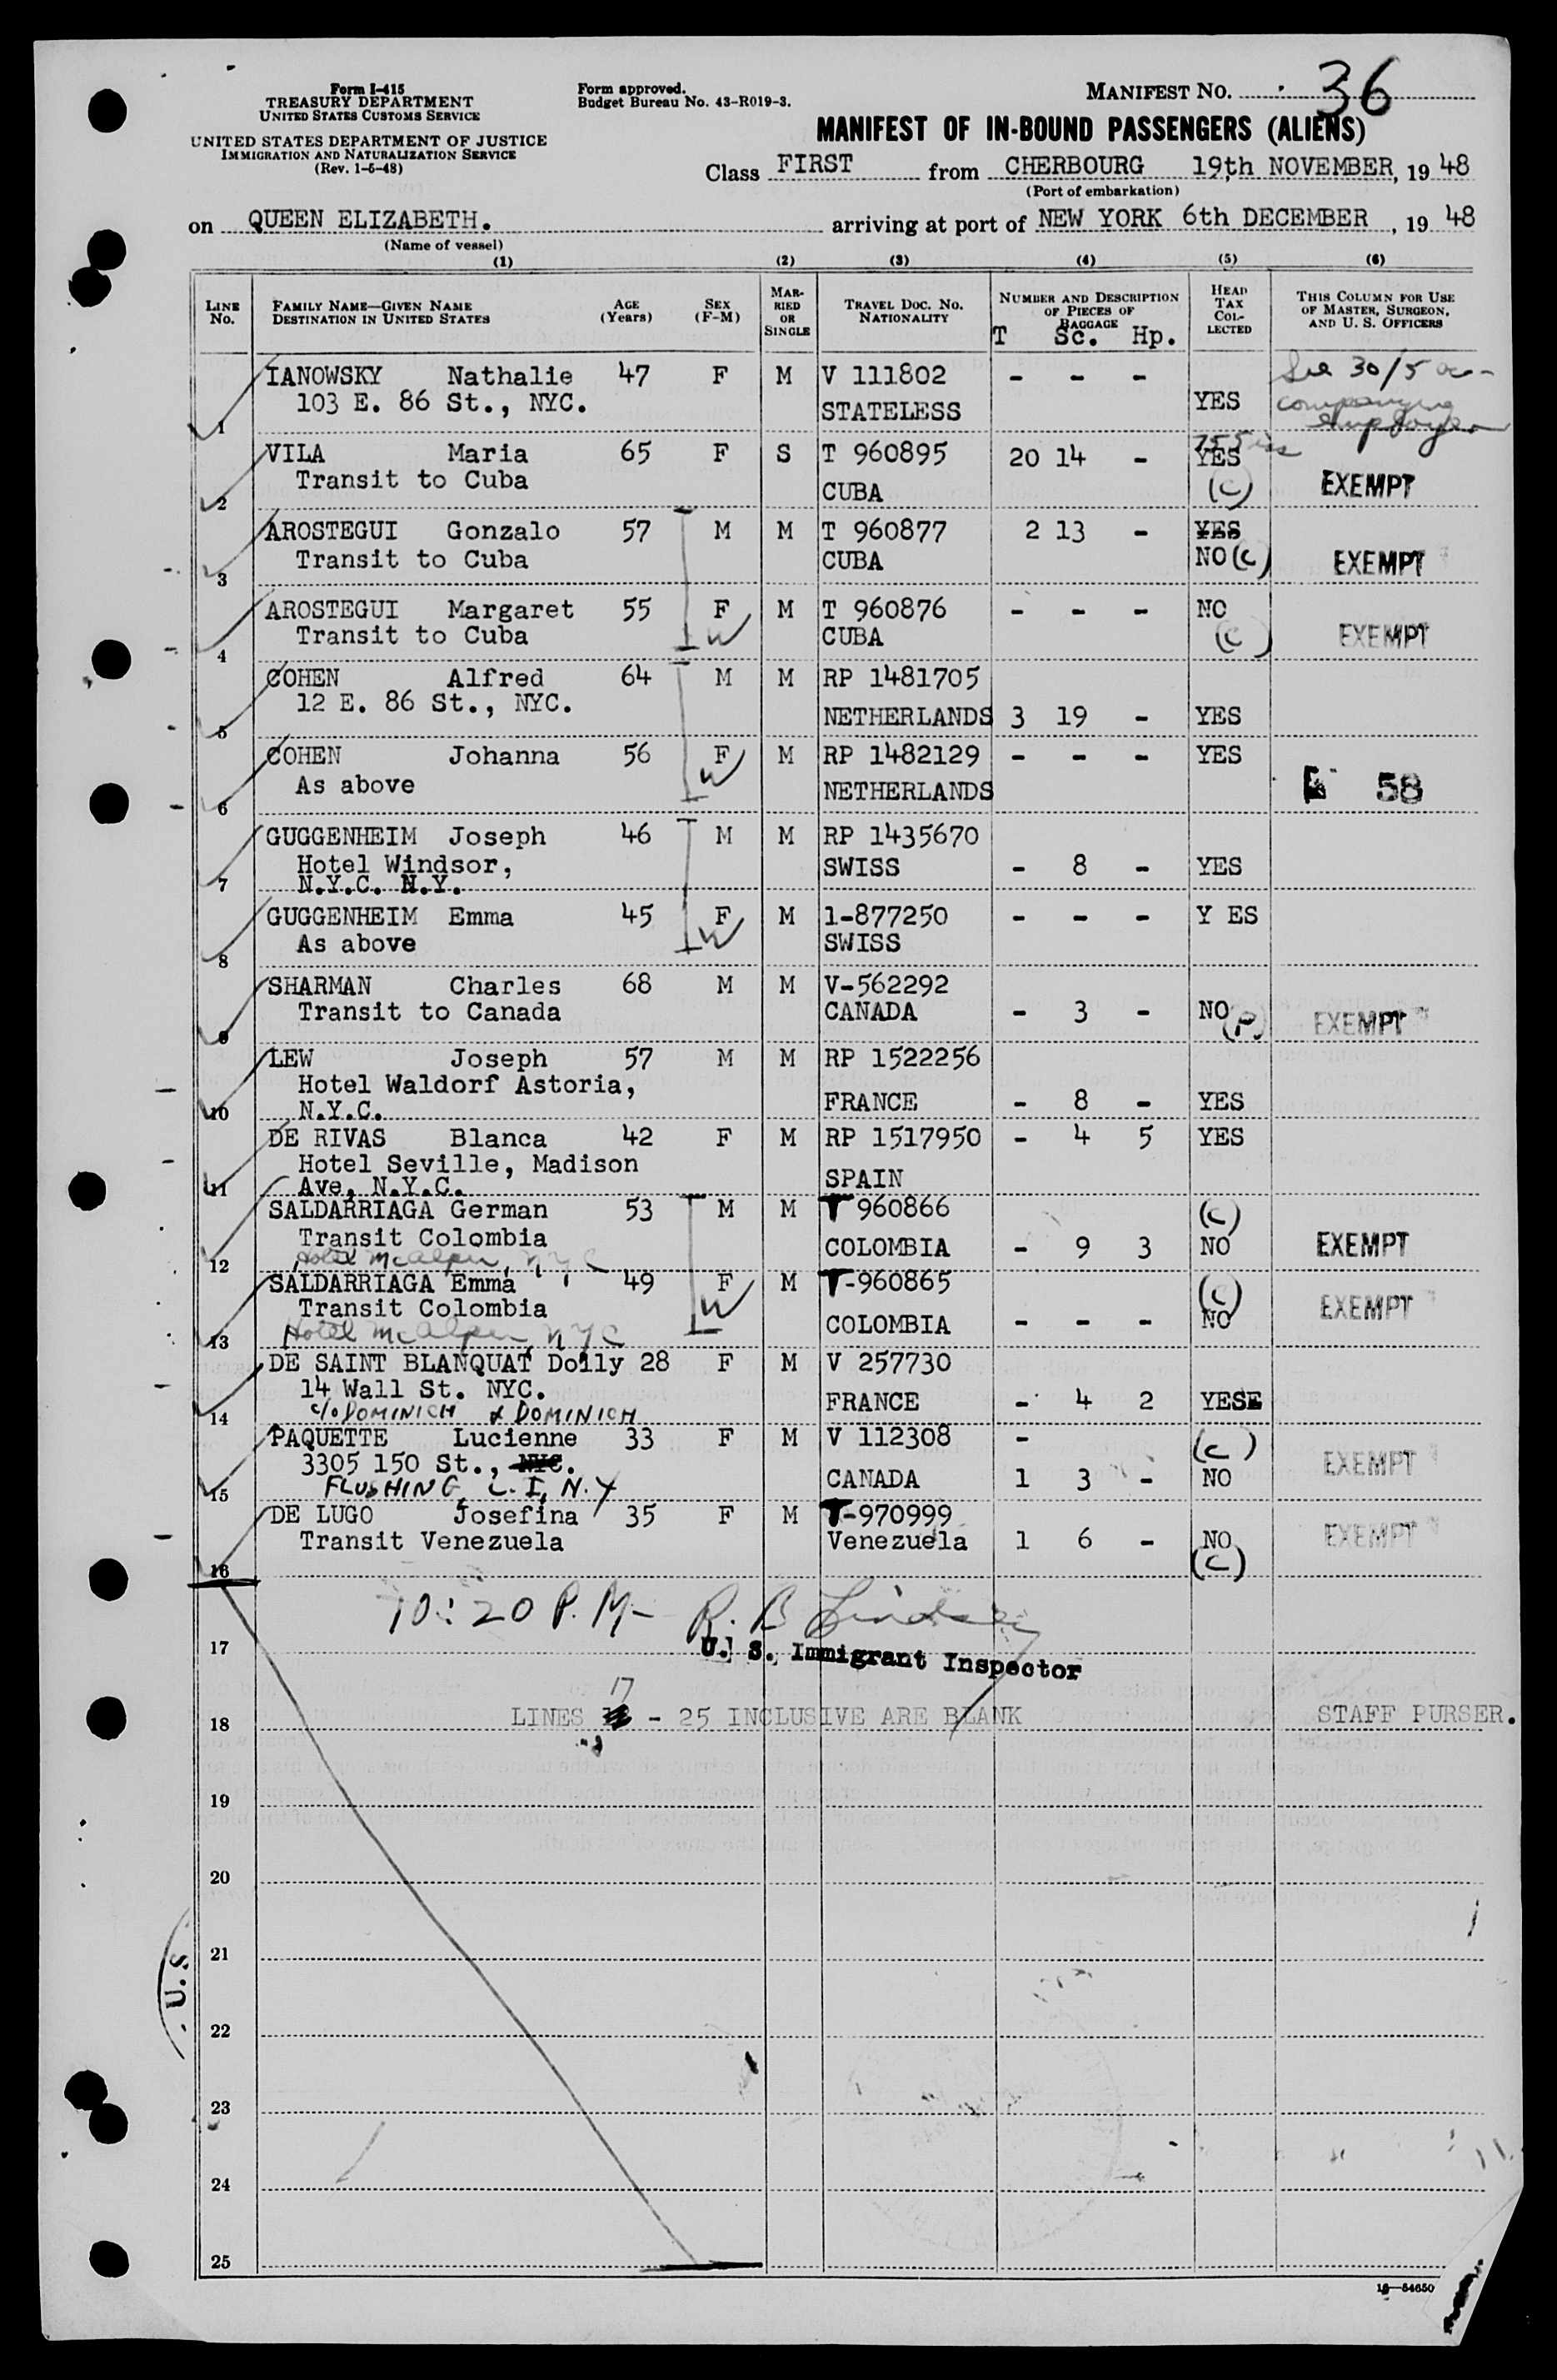 Form I-415
TREASURY DEPARTMENT
UNITED STATES CUSTOMS SERVICE
UNITED STATES DEPARTMENT OF JUSTICE
IMMIGRATION AND NATURALIZATION SERVICE
(Rev. 1-6-48)
Form approved.
Budget Bureau No. 43-R019-3.
MANIFEST NO. 36
MANIFEST OF IN-BOUND PASSENGERS (ALIENS)
Class FIRST from CHERBOURG 19th NOVEMBER, 19 48
(Port of embarkation)
on QUEEN ELIZABETH. arriving at port of NEW YORK 6th DECEMBER, 19 48
(Name of vessel)
(1) (2) (3) (4) (5) (6)
LINE No. FAMILY NAME—GIVEN NAME DESTINATION IN UNITED STATES AGE (Years) SEX (F-M) MARRIED OR SINGLE TRAVEL DOC. NO. NATIONALITY NUMBER AND DESCRIPTION OF PIECES OF BAGGAGE HEAD TAX COLLECTED THIS COLUMN FOR USE OF MASTER, SURGEON, AND U. S. OFFICERS
T Sc. Hp.
IANOWSKY Nathalie 47 F M V 111802 - - - See 30/5 ac-
103 E. 86 St., NYC. STATELESS YES companying
1 employer
VILA Maria 65 F S T 960895 20 14 - YES
Transit to Cuba CUBA (C) EXEMPT
2
AROSTEGUI Gonzalo 57 M M T 960877 2 13 - YES
Transit to Cuba CUBA NO (C) EXEMPT
3
AROSTEGUI Margaret 55 F M T 960876 - - - NO
Transit to Cuba W CUBA (C) EXEMPT
4
COHEN Alfred 64 M M RP 1481705
12 E. 86 St., NYC.
5 NETHERLANDS 3 19 - YES
COHEN Johanna 56 F M RP 1482129 - - - YES
As above W NETHERLANDS 58
6
GUGGENHEIM Joseph 46 M M RP 1435670
Hotel Windsor, SWISS - 8 - YES
7 N.Y.C. N.Y.
GUGGENHEIM Emma 45 F M 1-877250 - - - Y ES
As above W SWISS
8
SHARMAN Charles 68 M M V-562292
Transit to Canada CANADA - 3 - NO (P) EXEMPT
9
LEW Joseph 57 M M RP 1522256
Hotel Waldorf Astoria,
10 N.Y.C. FRANCE - 8 - YES
DE RIVAS Blanca 42 F M RP 1517950 - 4 5 YES
Hotel Seville, Madison
11 Ave, N.Y.C. SPAIN
SALDARRIAGA German 53 M M T 960866 (C)
Transit Colombia COLOMBIA - 9 3 NO EXEMPT
12 Hotel McAlpin, NYC
SALDARRIAGA Emma 49 F M T-960865 (C)
Transit Colombia W COLOMBIA - - - NO EXEMPT
13 Hotel McAlpin, NYC
DE SAINT BLANQUAT Dolly 28 F M V 257730
14 Wall St. NYC. FRANCE - 4 2 YESE
14 c/o DOMINICH & DOMINICH
PAQUETTE Lucienne 33 F M V 112308 - (C)
3305 150 St., NYC. CANADA 1 3 - NO EXEMPT
15 FLUSHING, L.I, N.Y
DE LUGO Josefina 35 F M T-970999
Transit Venezuela Venezuela 1 6 - NO EXEMPT
16 (C)
10:20 P.M- R. B Lindsey
17 U. S. Immigrant Inspector
17
18 LINES - 25 INCLUSIVE ARE BLANK STAFF PURSER.
19
20
21
U.S
22
23
24
25
16—54650